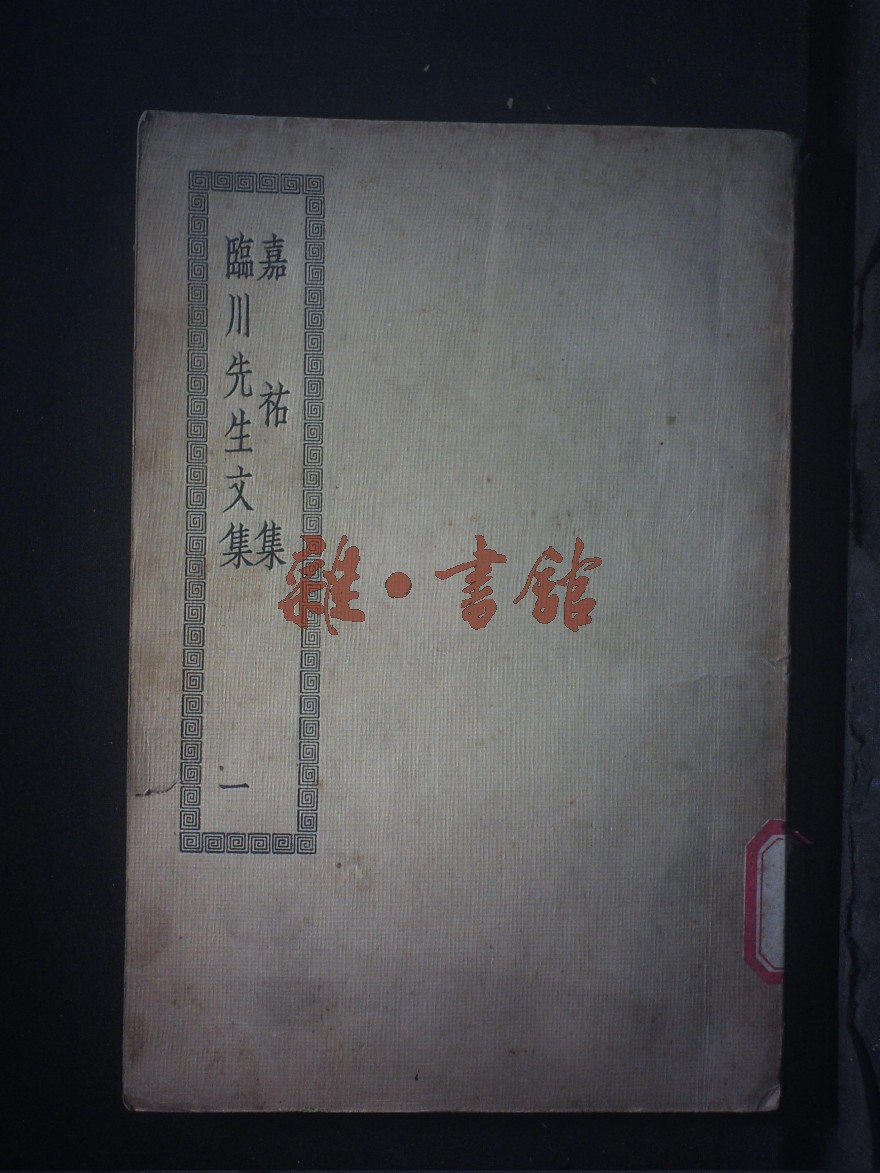 嘉祐集
臨川先生文集 一
雜·書館